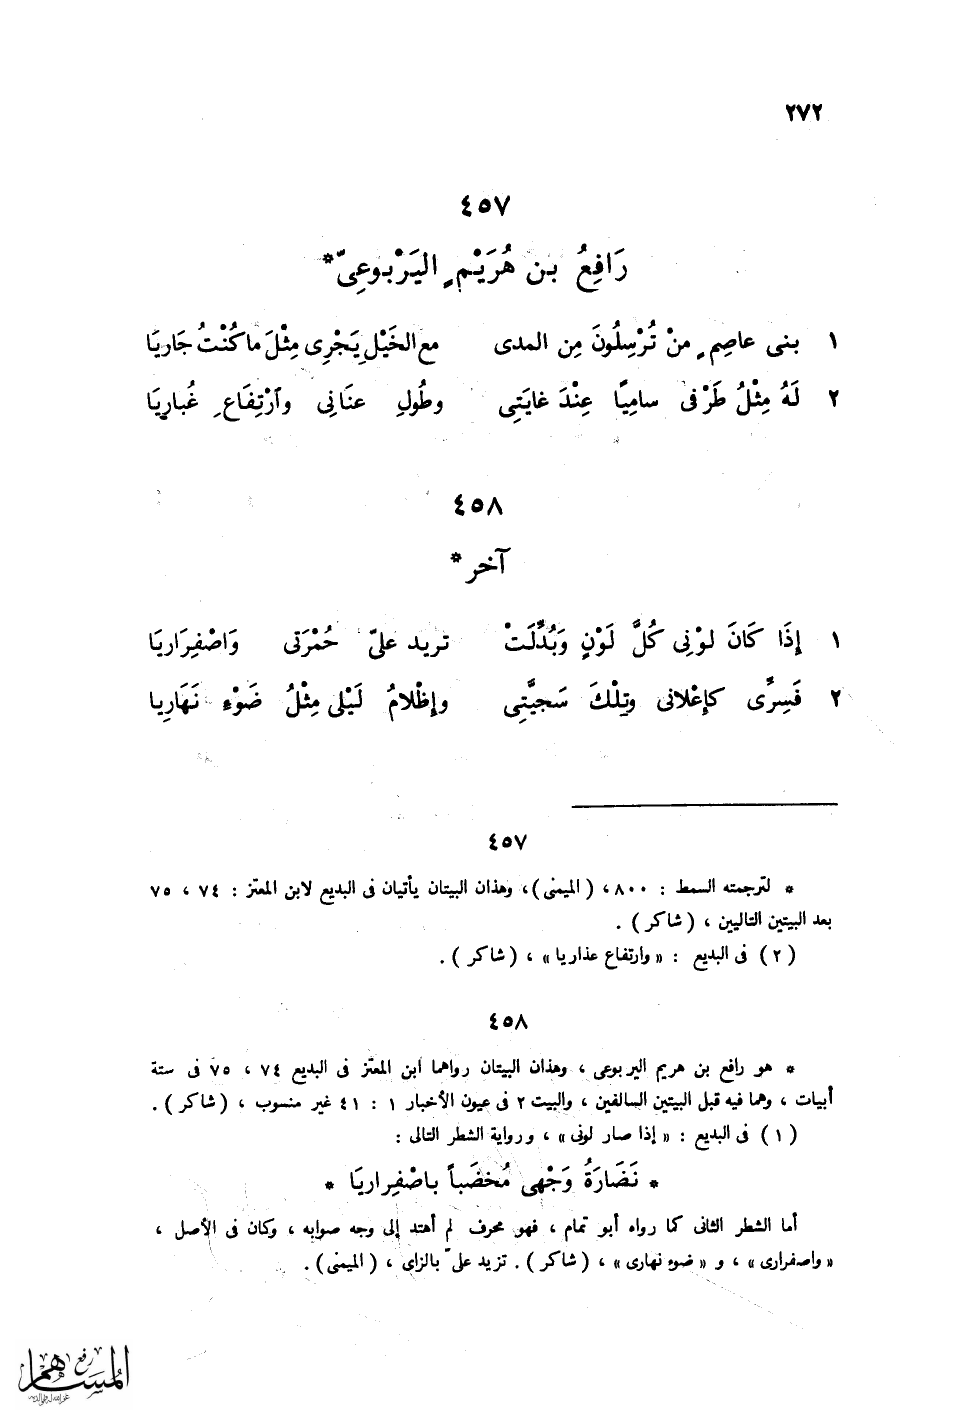 ٢٧٢
٤٥٧
رَافِعُ بن هُرَيْمٍ اليَرْبوعِىّ*
١ بنى عاصِمٍ منْ تُرْسِلُونَ مِن المدى مع الخَيْلِ يَجْرِى مِثْلَ ما كُنْتُ جَاريَا
٢ لَهُ مِثْلُ طَرْفى سامِيًا عِنْدَ غايَتِى وطُولِ عنَانِى وٱرْتِفَاعِ غُبارِيَا
٤٥٨
آخر *
١ إذَا كَانَ لوْنِى كُلَّ لَوْنٍ وَبُدِّلَتْ تريد علىّ حُمْرَتى وَاصْفِرَاريَا
٢ فَسِرِّى كإعْلانى وتِلْكَ سَجيَّتِى وإظْلامُ لَيْلِى مِثْلُ ضَوْءِ نَهَارِيا
٤٥٧
* لترجمته السمط : ٨٠٠ ، ( الميمنى ) ، وهذان البيتان يأتيان فى البديع لابن المعتز : ٧٤ ، ٧٥
بعد البيتين التاليين ، ( شاكر ) .
( ٢ ) فى البديع : « وارتفاع عذاريا » ، ( شاكر ) .
٤٥٨
* هو رافع بن هريم اليربوعى ، وهذان البيتان رواهما ابن المعتز فى البديع ٧٤ ، ٧٥ فى ستة
أبيات ، وهما فيه قبل البيتين السالفين ، والبيت ٢ فى عيون الأخبار ١ : ٤١ غير منسوب ، ( شاكر ) .
( ١ ) فى البديع : « إذا صار لونى » ، ورواية الشطر التالى :
* نَضَارَةُ وَجْهى مُخضَباً باصْفِراريَا *
أما الشطر الثانى كما رواه أبو تمام ، فهو محرف لم أهتد إلى وجه صوابه ، وكان فى الأصل ،
« واصفرارى » ، و « ضوء نهارى » ، ( شاكر ) . تزيد علىّ بالزاى ، ( الميمنى ) .